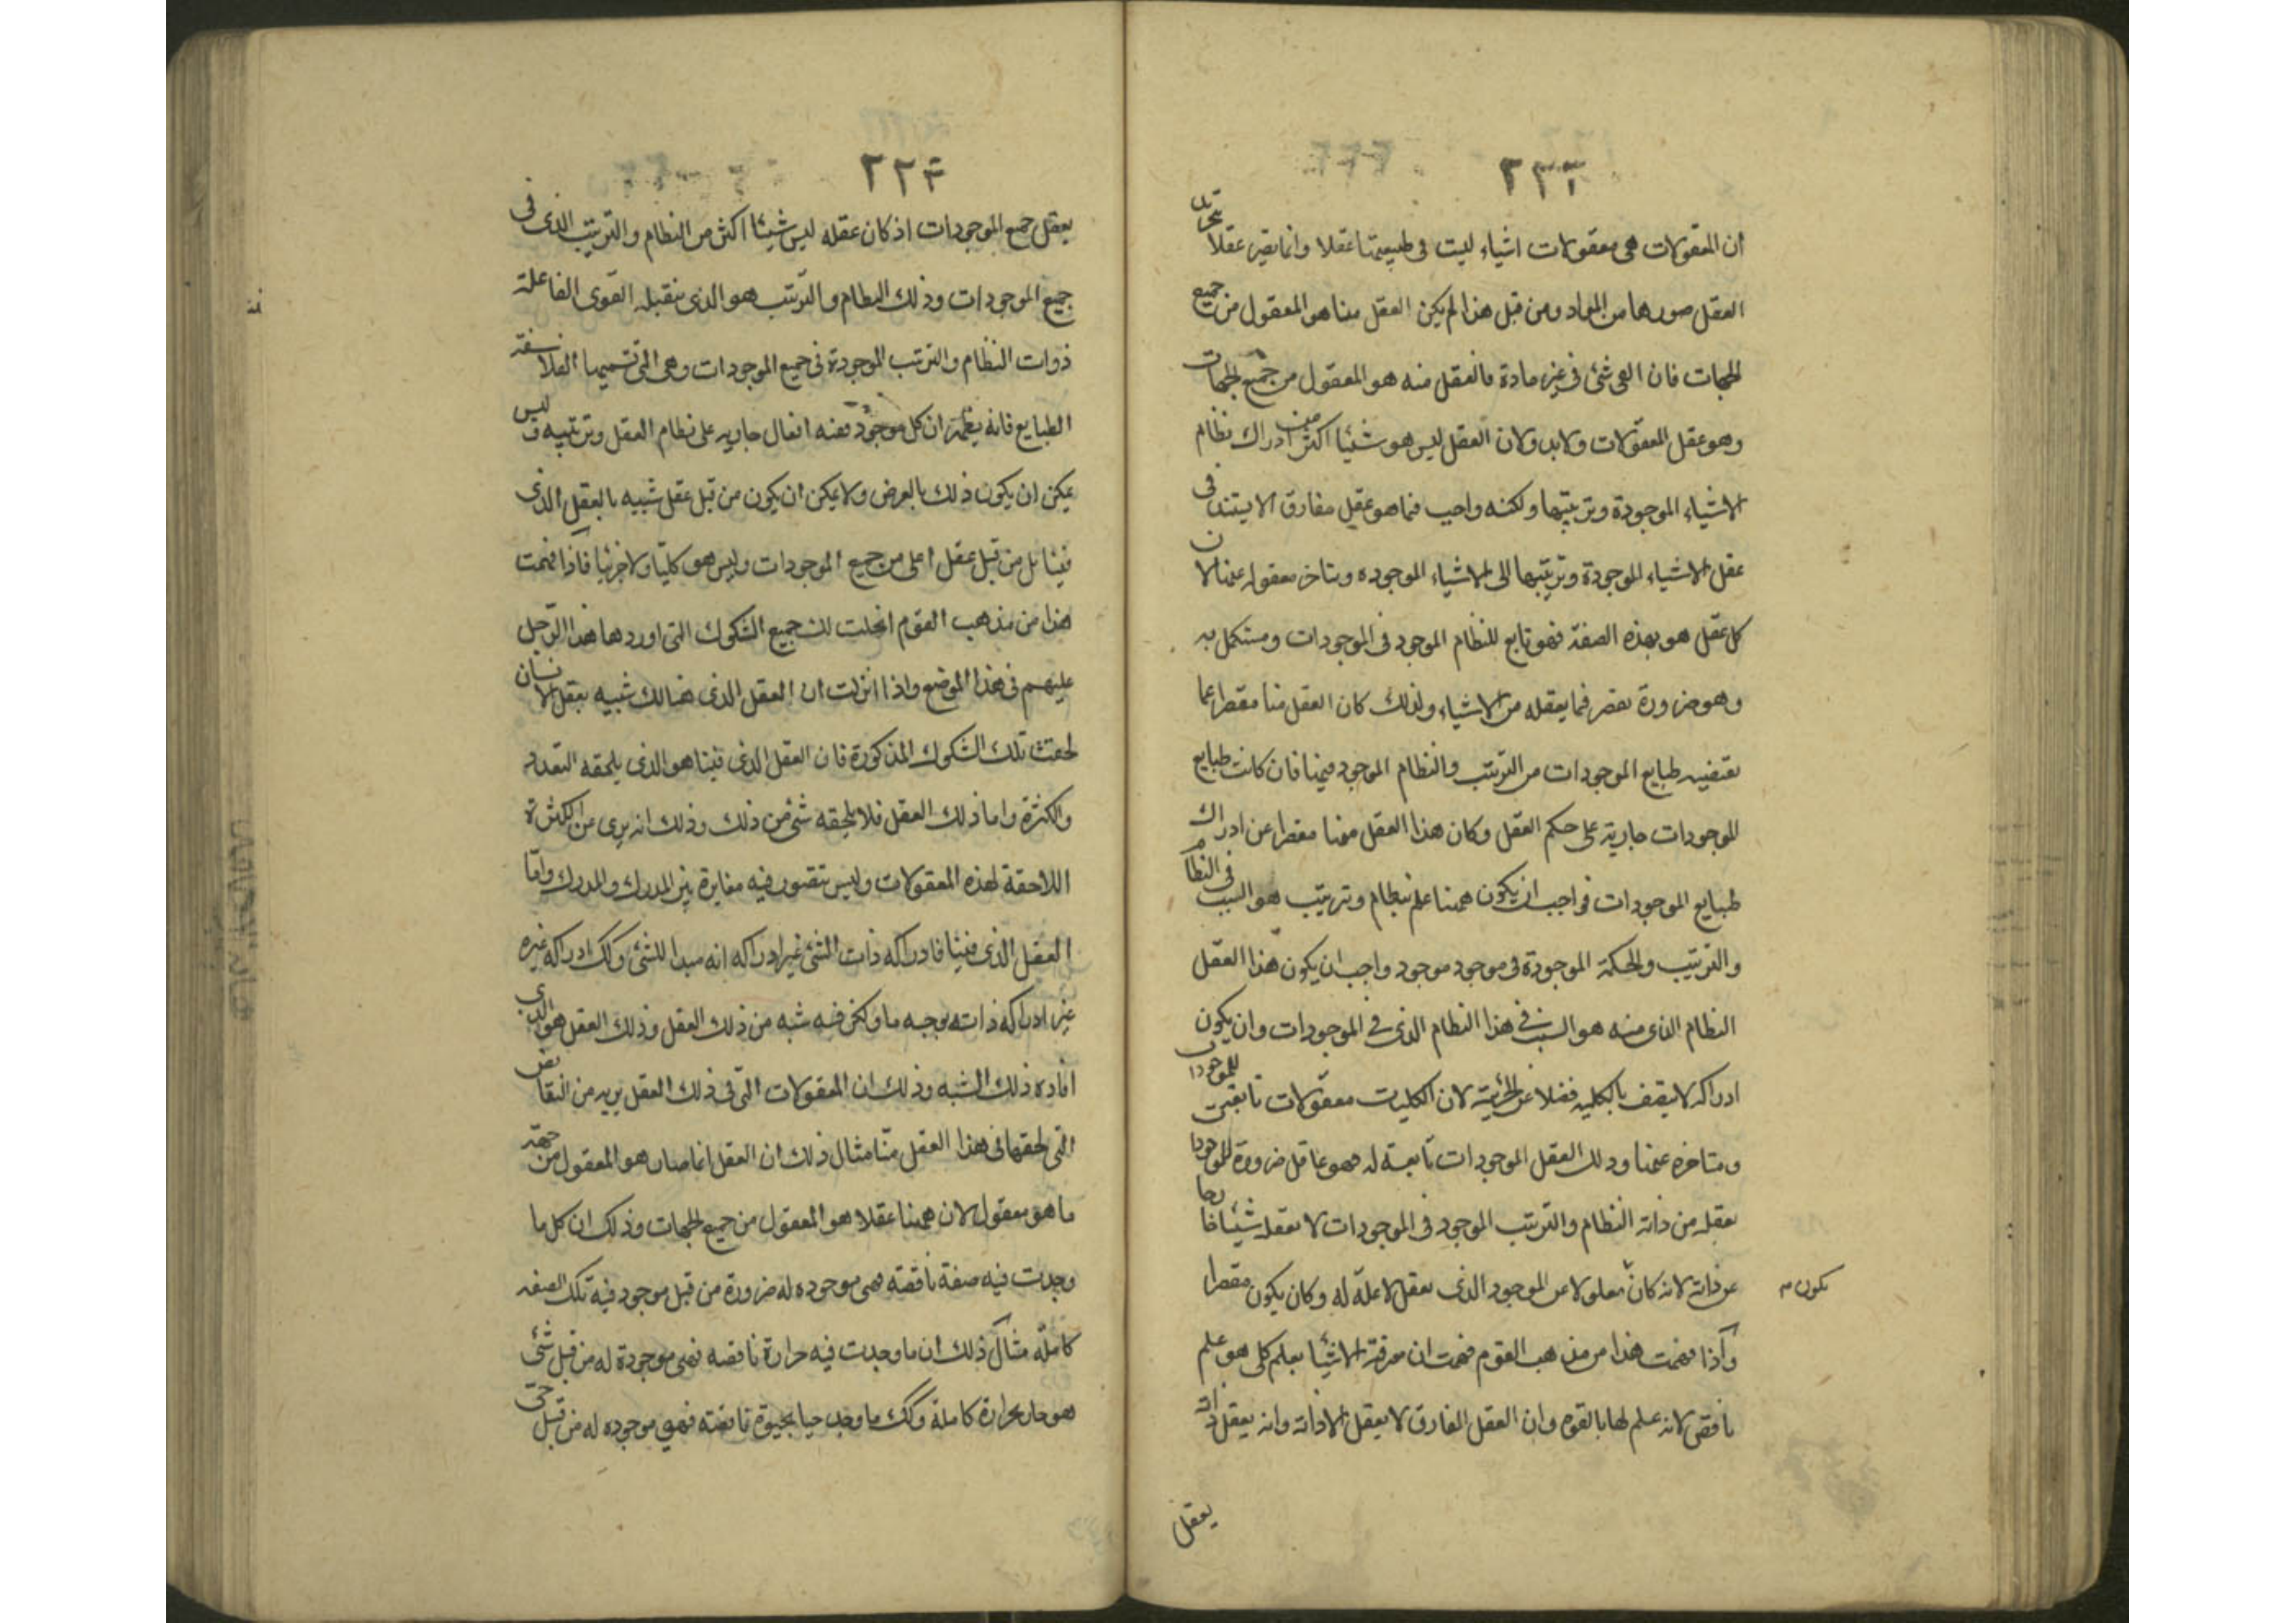 ٢٢٢
ان المعقولات هى معقولات اشياء ليست فى طبيعتها عقلا وانما تصير عقلا بتجريد
العقل صورها من المواد ومن قبل هذا لم يكن العقل منا هو المعقول من جميع
الجهات فان الفى شئ فى غير مادة فالعقل منه هو المعقول من جميع الجهات
وهو عقل المعقولات ولابد ولان العقل ليس هو شيئا اكثر من ادراك نظام
الاشياء الموجودة وترتيبها ولكنه واجب فيما هو عقل مفارق الا يستند فى
عقل الاشياء الموجودة وترتيبها الى الاشياء الموجوده ويتاخر معقوله عنها لان
كل عقل هو بهذه الصفة فهو تابع للنظام الموجود فى الموجودات ومستكمل به
وهو ضرورة يقصر فيما يعقله من الاشياء ولذلك كان العقل منا مقصرا عما
تقتضيه طبايع الموجودات من الترتيب والنظام الموجود فيها فان كانت طبايع
الموجودات جارية على حكم العقل وكان هذا العقل منا مقصرا عن ادراك
طبايع الموجودات فواجب ان يكون ههنا علم بنظام وترتيب هو السبب فى النظام
والترتيب والحكمة الموجودة فى موجود موجود واجب ان يكون هذا العقل
النظام الذى منه هو السبب فى هذا النظام الذى فى الموجودات وان يكون
ادراكه لا يتصف بالكليه فضلا عن الجزئية لان الكليات معقولات تابعة للموجودات
ومتاخره عنها وذلك العقل الموجودات تابعة له فهو عاقل ضرورة للموجودات
بعقله من ذاته النظام والترتيب الموجود فى الموجودات لا بعقله شيئا خارجا
عن ذاته لانه كان معلولا عن الموجود الذى يعقله لا علة له وكان يكون مقصرا
يكون
واذا فهمت هذا من مذهب القوم فهمت ان معرفة الاشيا بعلم كلى هو علم
ناقص لانه علم لها بالقوه وان العقل المفارق لا يعقل الا ذاته وانه بعقل ذاته
يعقل
٢٢٣
يعقل جميع الموجودات اذ كان عقله ليس شيئا اكثر من النظام والترتيب الذى فى
جميع الموجودات وذلك النظام والترتيب هو الذى تتقبله القوى الفاعلة
ذوات النظام والترتيب الموجودة فى جميع الموجودات وهى التى تسميها الفلاسفة
الطبايع فانه يظهر ان كل موجود ففيه افعال جاريه على نظام العقل وترتيبه وليس
يمكن ان يكون ذلك بالعرض ولا يمكن ان يكون من قبل عقل شبيه بالعقل الذى
فينا بل من قبل عقل اعلى من جميع الموجودات وليس هو كليا ولا جزئيا فاذا فهمت
هذا من مذهب القوم انحلت لك جميع الشكوك التى اوردها هذا الرجل
عليهم فى هذا الموضع واذا انزلت ان العقل الذى هنالك شبيه بعقل الانسان
لحقت تلك الشكوك المذكورة فان العقل الذى فينا هو الذى يلحقه التعدد
والكثرة واما ذلك العقل فلا يلحقه شئ من ذلك وذلك انه برى عن الكثرة
اللاحقة لهذه المعقولات وليس يتصور فيه مغايرة بين المدرك والمدرك واما
العقل الذى فينا فادراكه ذات الشئ غير ادراكه انه مبدا للشئ وكك ادراكه غيره
غير ادراكه ذاته بوجه ما ولكن فيه شبه من ذلك العقل وذلك العقل هو الذى
افاده ذلك الشبه وذلك ان المعقولات التى فى ذلك العقل بريه من النقايض
التى لحقها فى هذا العقل منا مثال ذلك ان العقل انما صار هو المعقول من جهة
ما هو معقول لان ههنا عقلا هو المعقول من جميع الجهات وذلك ان كل ما
وجدت فيه صفة ناقصة فهى موجوده له ضرورة من قبل موجود فيه تلك الصفه
كاملة مثال ذلك ان ما وجدت فيه حرارة ناقصه فهى موجودة له من قبل شئ
هو حار بحرارة كاملة وكك ما وجد حيا بحيوة ناقصته فهى موجوده له من قبل حى